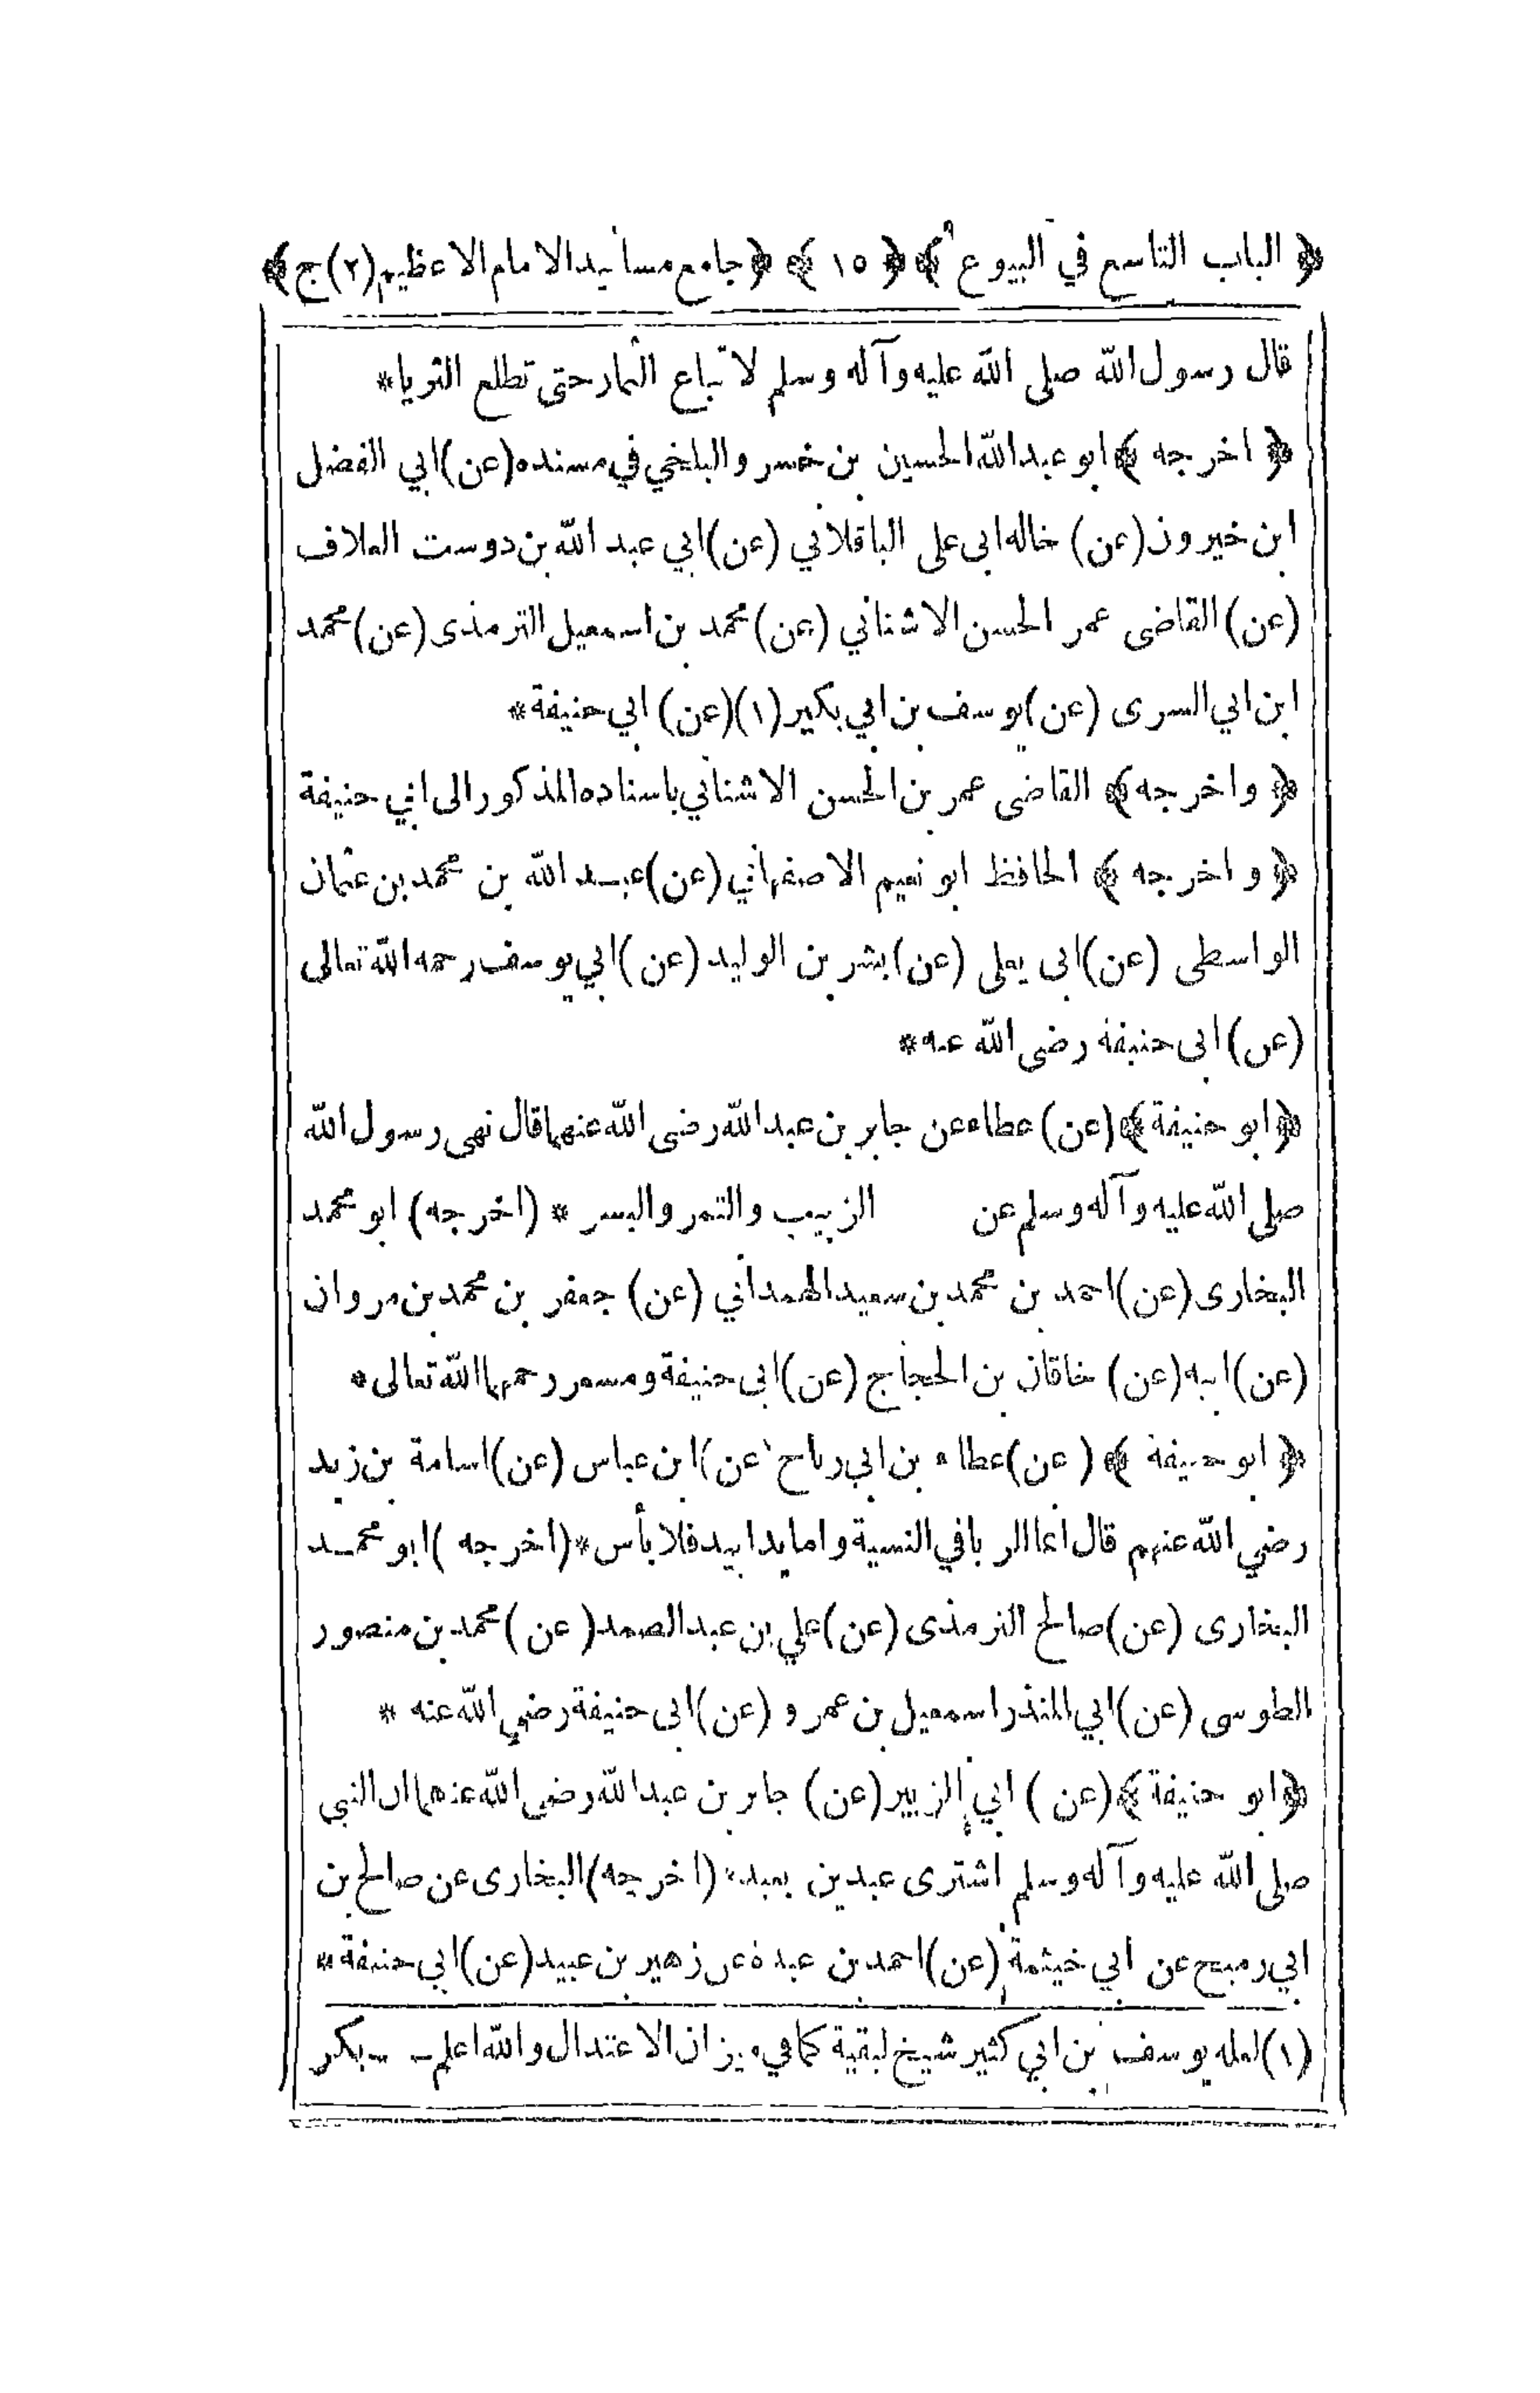 ﴿ الباب التاسع في البيوع ﴾ ﴿ ١٥ ﴾ ﴿ جامع مسانيد الامام الاعظم (٢) ج ﴾
قال رسول الله صلى الله عليه وآله وسلم لا تباع الثمار حتى تطلع الثريا *
﴿ اخرجه ﴾ ابو عبد الله الحسين بن خسرو البلخي في مسنده (عن) ابي الفضل
ابن خيرون (عن) خاله ابى على الباقلاني (عن) ابي عبد الله بن دوست العلاف
(عن) القاضى عمر الحسن الاشناني (عن) محمد بن اسمعيل الترمذى (عن) محمد
ابن ابي السرى (عن) يوسف بن ابي بكير (١) (عن) ابي حنيفة *
﴿ واخرجه ﴾ القاضى عمر بن الحسن الاشناني باسناده المذكور الى ابي حنيفة
﴿ واخرجه ﴾ الحافظ ابو نعيم الاصفهاني (عن) عبد الله بن محمد بن عثمان
الواسطى (عن) ابى يعلى (عن) بشر بن الوليد (عن) ابي يوسف رحمه الله تعالى
(عن) ابى حنيفة رضى الله عنه *
﴿ ابو حنيفة ﴾ (عن) عطاء عن جابر بن عبد الله رضى الله عنهما قال نهى رسول الله
صلى الله عليه وآله وسلم عن الزبيب والتمر والبسر * (اخرجه) ابو محمد
البخارى (عن) احمد بن محمد بن سعيد الهمداني (عن) جعفر بن محمد بن مروان
(عن) ابيه (عن) خاقان بن الحجاج (عن) ابى حنيفة ومسعر رحمهما الله تعالى *
﴿ ابو حنيفة ﴾ (عن) عطاء بن ابي رباح (عن) ابن عباس (عن) اسامة بن زيد
رضي الله عنهم قال انما الربا في النسية واما يدا بيد فلا بأس * (اخرجه) ابو محمد
البخارى (عن) صالح الترمذى (عن) علي بن عبد الصمد (عن) محمد بن منصور
الطوسى (عن) ابي المنذر اسمعيل بن عمرو (عن) ابى حنيفة رضي الله عنه *
﴿ ابو حنيفة ﴾ (عن) ابي الزبير (عن) جابر بن عبد الله رضى الله عنهما ان النبي
صلى الله عليه وآله وسلم اشترى عبدين بعبد * (اخرجه) البخارى عن صالح بن
ابي رميح عن ابي خيثمة (عن) احمد بن عبدة عن زهير بن عبيد (عن) ابي حنيفة *
(١) لعله يوسف بن ابي كثير شيخ لبقية كما في ميزان الاعتدال والله اعلم ــ بكر